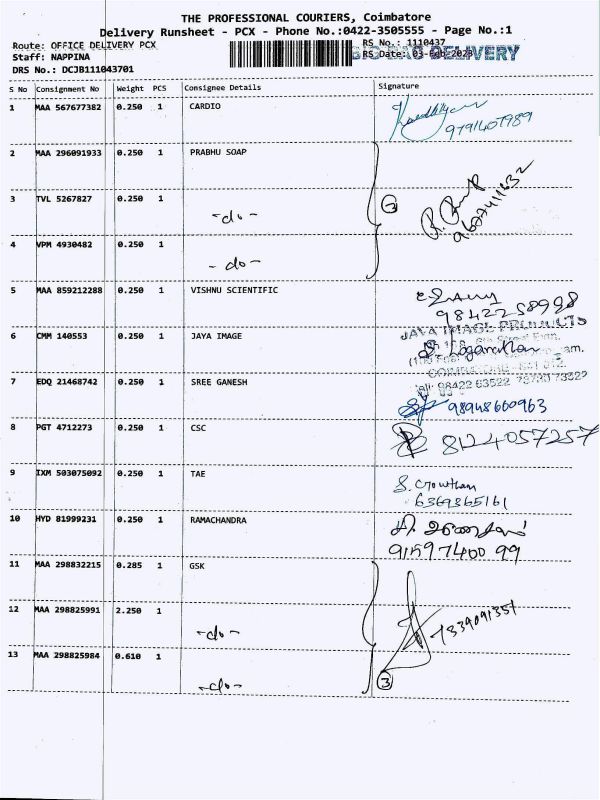 THE PROFESSIONAL COURIERS, Coimbatore
Delivery Runsheet - PCX - Phone No.:0422-3505555 - Page No.:1
Route: OFFICE DELIVERY PCX
RS No.: 1110437
BIG BAG DELIVERY
Staff: NAPPINA
RS Date: 03-Feb-2023
DRS No.: DCJB111043701
S No Consignment No Weight PCS Consignee Details Signature
1 MAA 567677382 0.250 1 CARDIO
9791407989
2 MAA 296091933 0.250 1 PRABHU SOAP
9607411632
3 TVL 5267827 0.250 1 -do-
4 VPM 4930482 0.250 1 -do-
5 MAA 859212288 0.250 1 VISHNU SCIENTIFIC
9842258998
JAYA IMAGE PRODUCTS
6 CMM 140553 0.250 1 JAYA IMAGE
S. Loganathan
7 EDQ 21468742 0.250 1 SREE GANESH
98948660963
8 PGT 4712273 0.250 1 CSC 8124057257
9 IXM 503075092 0.250 1 TAE
S. Gowtham
6369865161
10 HYD 81999231 0.250 1 RAMACHANDRA
9159740099
11 MAA 298832215 0.285 1 GSK
12 MAA 298825991 2.250 1 -do-
7339091351
13 MAA 298825984 0.610 1 -do-
3